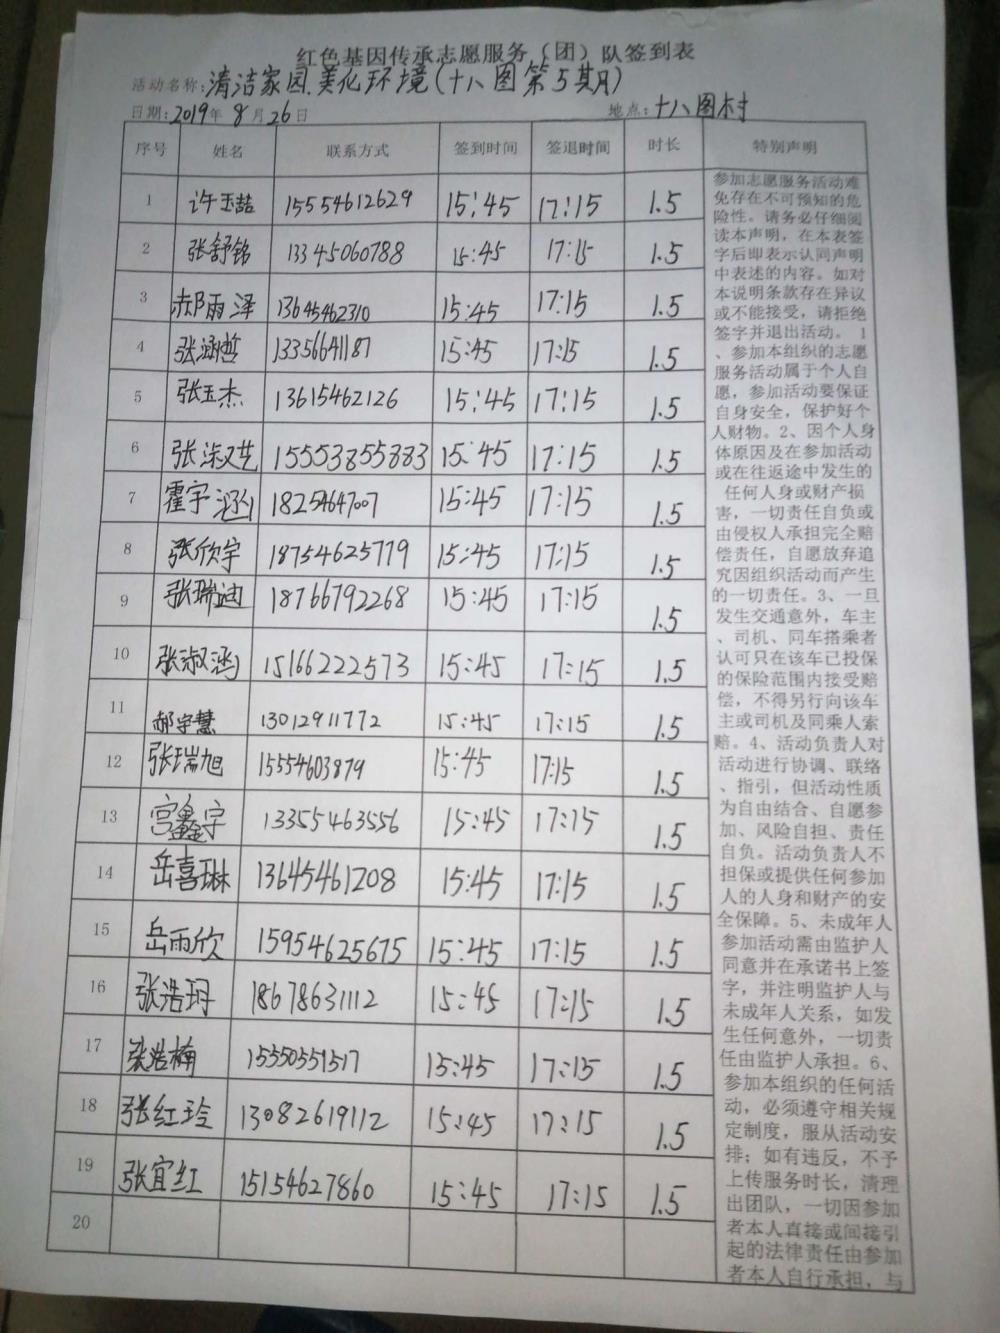 红色基因传承志愿服务（团）队签到表
活动名称:清洁家园,美化环境(十八图第5期)
日期:2019年8月26日 地点:十八图村
序号 姓名 联系方式 签到时间 签退时间 时长 特别声明
1 许玉喆 15554612629 15:45 17:15 1.5
2 张舒铭 13345060788 15:45 17:15 1.5
3 郝雨泽 13645462310 15:45 17:15 1.5
4 张涵哲 13356641187 15:45 17:15 1.5
5 张玉杰 13615462126 15:45 17:15 1.5
6 张淑艺 15553855883 15:45 17:15 1.5
7 霍宇涵 18254647007 15:45 17:15 1.5
8 张欣宇 18754625779 15:45 17:15 1.5
9 张瑞迪 18766792268 15:45 17:15 1.5
10 张淑涵 15166222573 15:45 17:15 1.5
11 郝宇慧 13012911772 15:45 17:15 1.5
12 张瑞旭 15554603879 15:45 17:15 1.5
13 宫鑫宇 13355463556 15:45 17:15 1.5
14 岳喜琳 13645461208 15:45 17:15 1.5
15 岳雨欣 15954625675 15:45 17:15 1.5
16 张浩玥 18678631112 15:45 17:15 1.5
17 张浩楠 15550551517 15:45 17:15 1.5
18 张红玲 13082619112 15:45 17:15 1.5
19 张宜红 15154627860 15:45 17:15 1.5
20
参加志愿服务活动难
免存在不可预知的危
险性。请务必仔细阅
读本声明，在本表签
字后即表示认同声明
中表述的内容。如对
本说明条款存在异议
或不能接受，请拒绝
签字并退出活动。 1
、参加本组织的志愿
服务活动属于个人自
愿，参加活动要保证
自身安全，保护好个
人财物。2、因个人身
体原因及在参加活动
或在往返途中发生的
任何人身或财产损
害，一切责任自负或
由侵权人承担完全赔
偿责任，自愿放弃追
究因组织活动而产生
的一切责任。3、一旦
发生交通意外，车主
、司机、同车搭乘者
认可只在该车已投保
的保险范围内接受赔
偿，不得另行向该车
主或司机及同乘人索
赔。4、活动负责人对
活动进行协调、联络
、指引，但活动性质
为自由结合、自愿参
加、风险自担、责任
自负。活动负责人不
担保或提供任何参加
人的人身和财产的安
全保障。5、未成年人
参加活动需由监护人
同意并在承诺书上签
字，并注明监护人与
未成年人关系，如发
生任何意外，一切责
任由监护人承担。6、
参加本组织的任何活
动，必须遵守相关规
定制度，服从活动安
排；如有违反，不予
上传服务时长，清理
出团队，一切因参加
者本人直接或间接引
起的法律责任由参加
者本人自行承担，与